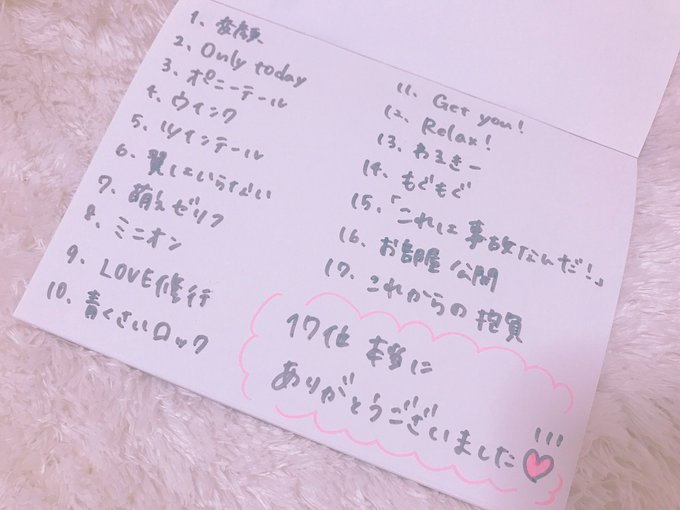 1、変顔
2、Only today
3、ポニーテール
4、ウィンク
5、ツインテール
6、翼はいらない
7、萌えゼリフ
8、ミニオン
9、LOVE修行
10、青くさいロック
11、Get you!
12、Relax!
13、わるきー
14、もぐもぐ
15、「これは事故なんだ!」
16、お部屋公開
17、これからの抱負
17位 本当に
ありがとうございました!!!